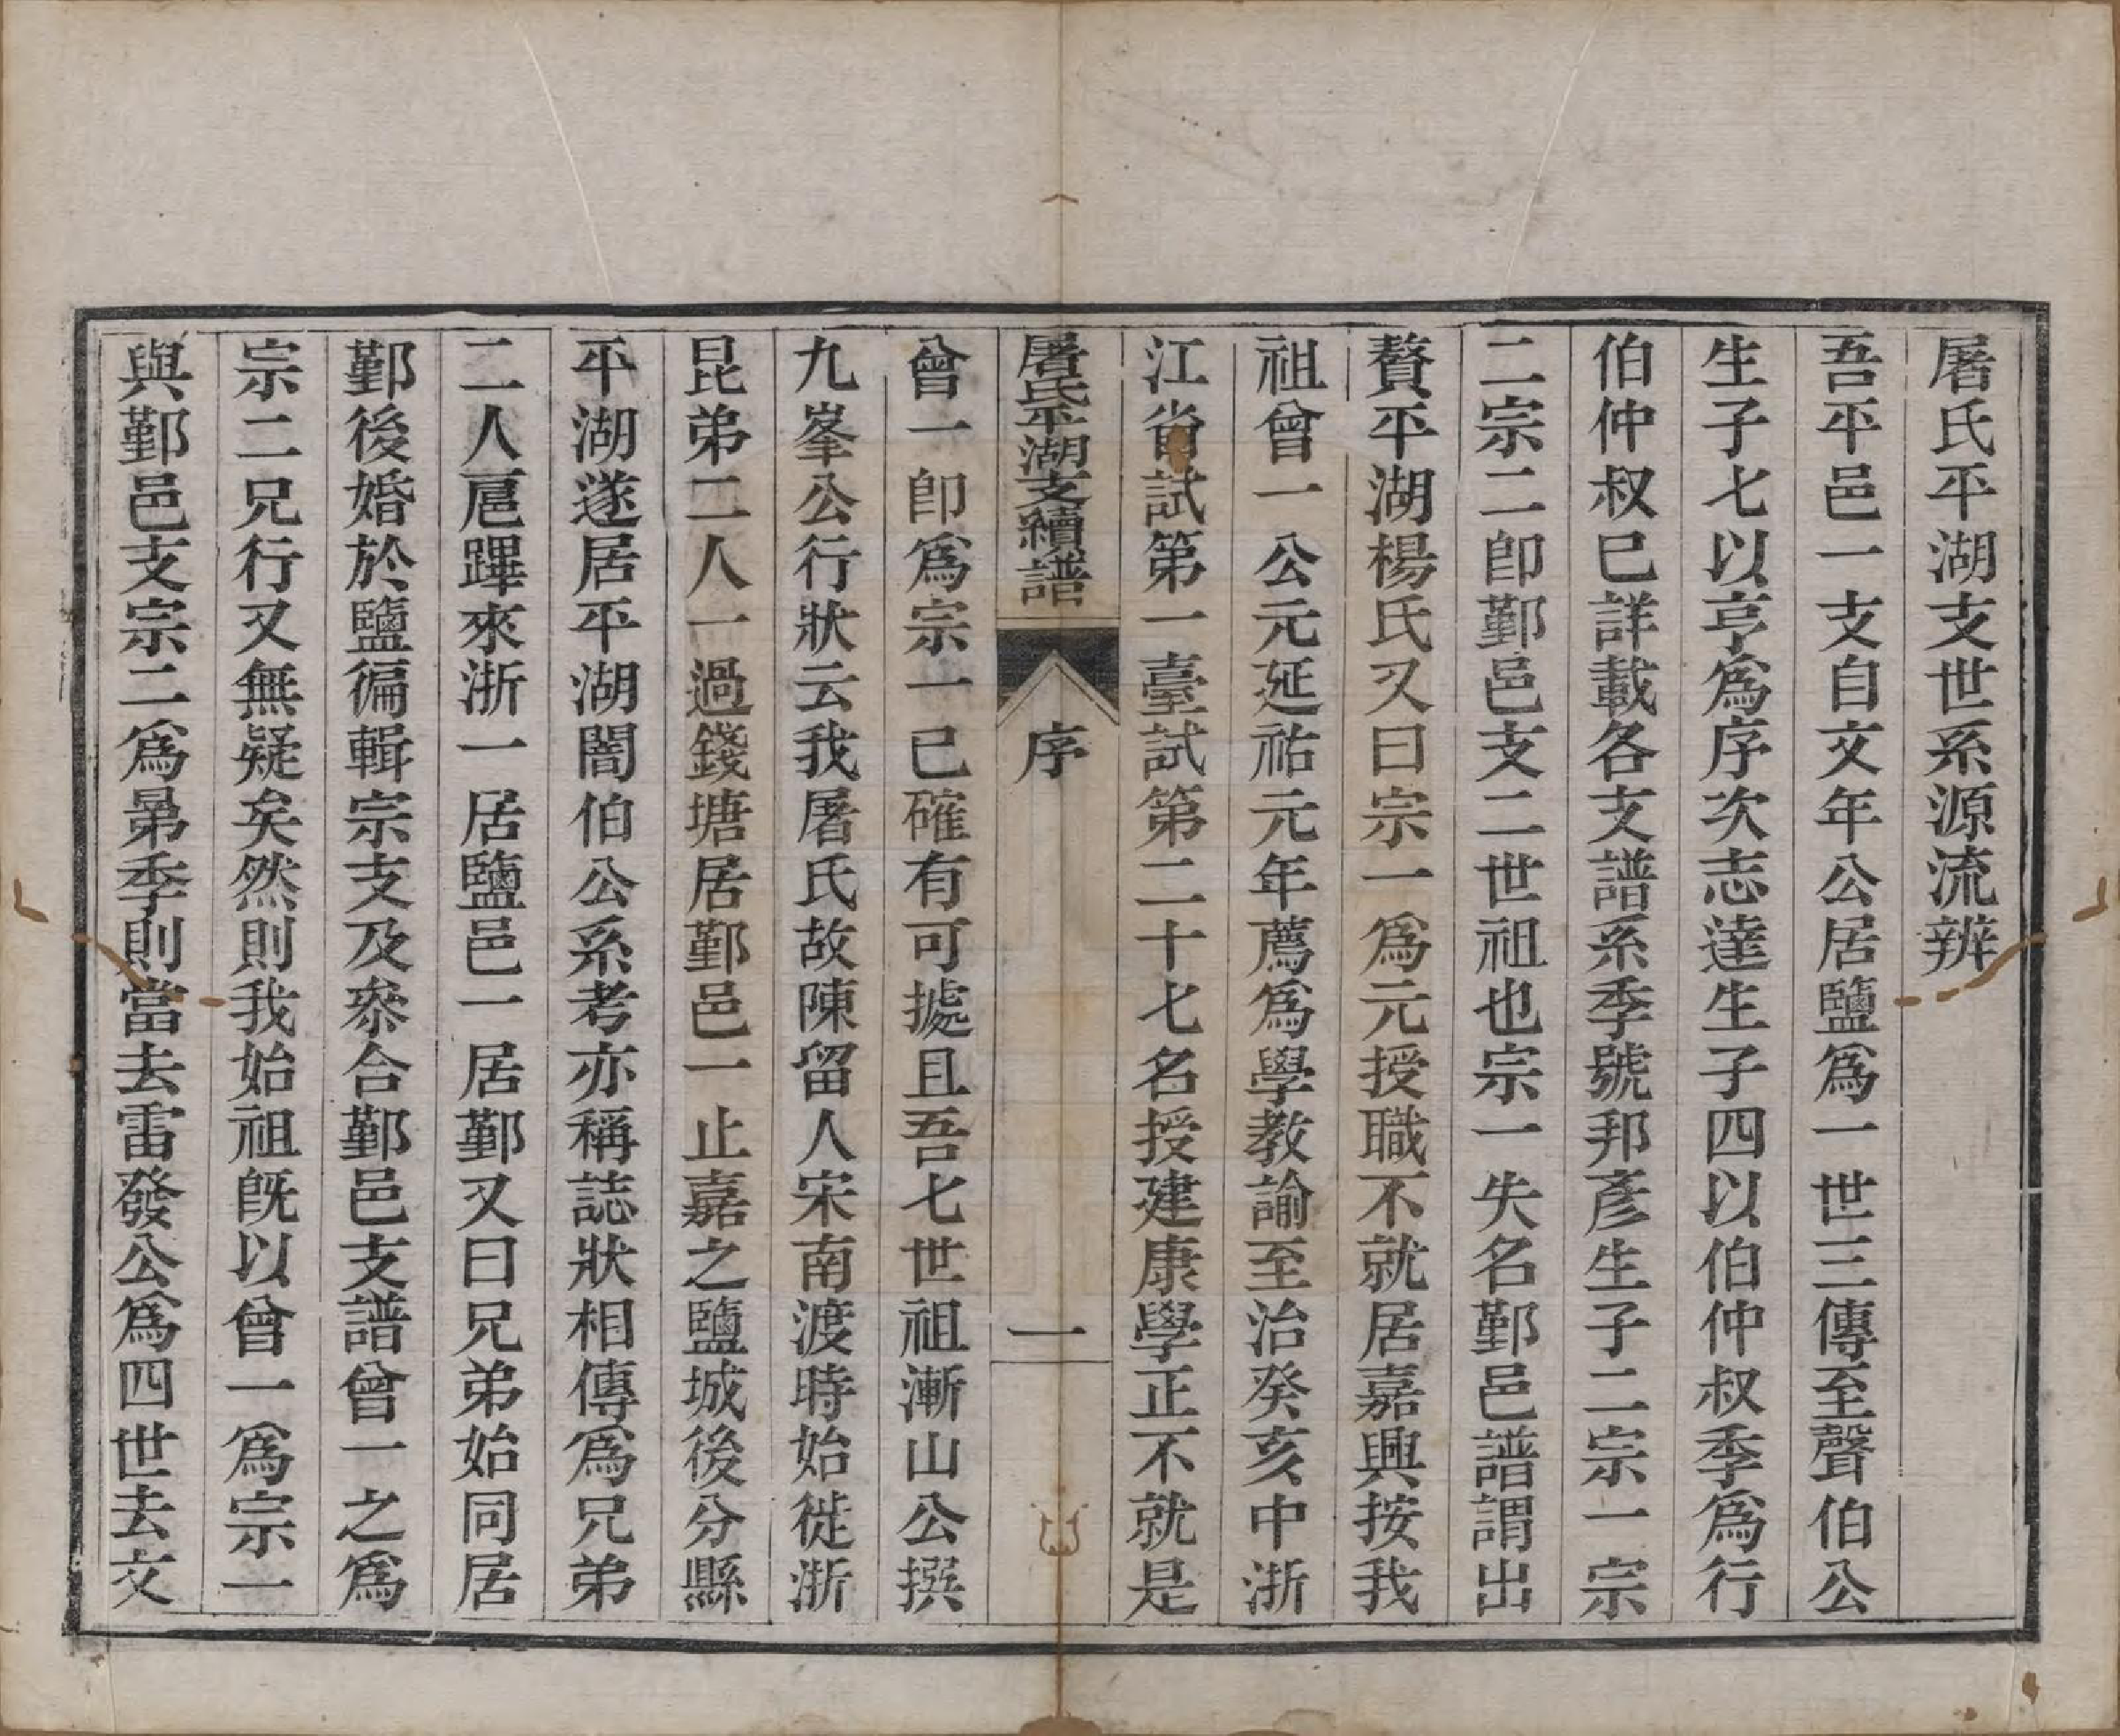 屠氏平湖支世系源流辨
吾平邑一支自文年公居鹽爲一世三傳至聲伯公
生子七以亨爲序次志達生子四以伯仲叔季爲行
伯仲叔巳詳載各支譜系季號邦彥生子二宗一宗
二宗二卽鄞邑支二世祖也宗一失名鄞邑譜謂出
贅平湖楊氏又曰宗一爲元授職不就居嘉興按我
祖曾一公元延祐元年薦爲學教諭至治癸亥中浙
江省試第一臺試第二十七名授建康學正不就是
屠氏平湖支續譜
序
一
曾一卽爲宗一已確有可據且吾七世祖漸山公撰
九峯公行狀云我屠氏故陳留人宋南渡時始徙浙
昆弟二人一過錢塘居鄞邑一止嘉之鹽城後分縣
平湖遂居平湖闇伯公系考亦稱誌狀相傳爲兄弟
二人扈蹕來浙一居鹽邑一居鄞又曰兄弟始同居
鄞後婚於鹽徧輯宗支及叅合鄞邑支譜曾一之爲
宗二兄行又無疑矣然則我始祖旣以曾一爲宗一
與鄞邑支宗二爲昴季則當去雷發公爲四世去文